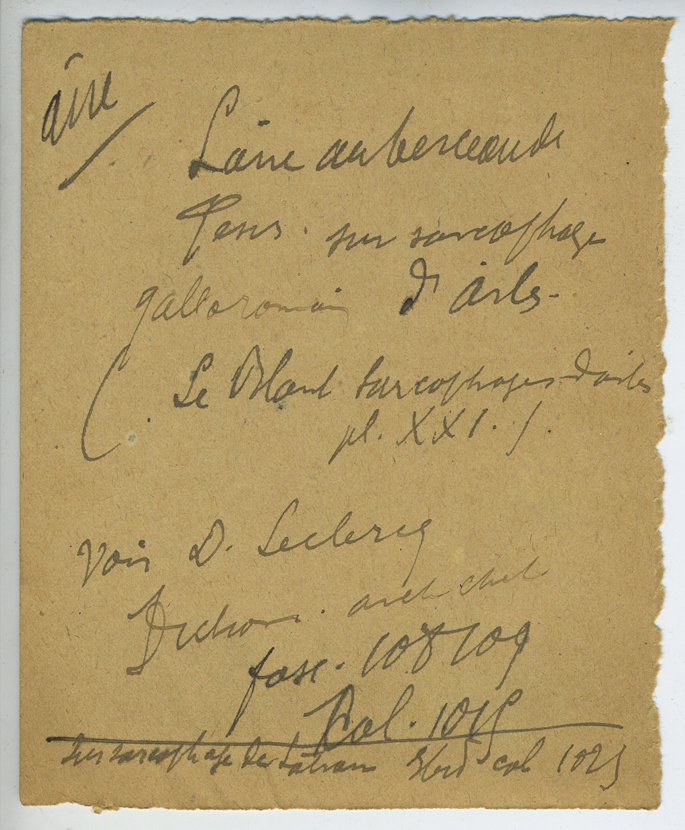 âne
L'âne au berceau de
Jesus. sur sarcophage
gallo romain d'Arles.
( Le Blant Sarcophages d'Arles
pl. XXI. )
Voir D. Leclercq
Diction. arch chret
fasc. 108 109
Col. 1015
sur sarcophage du Latran Ibid col 1025